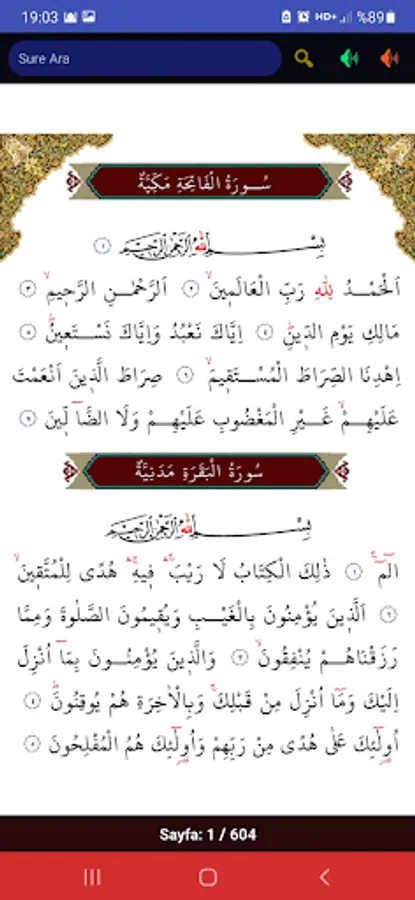 19:03 HD+ %89
Sure Ara
سُورَةُ الْفَاتِحَةِ مَكِّيَّةٌ
بِسْــــمِ اللهِ الرَّحْمٰنِ الرَّحِيمِ ١
اَلْحَمْـدُ لِلّٰهِ رَبِّ الْعَالَمِينَۙ ٢ اَلرَّحْمٰنِ الرَّحِيمِۙ ٣
مَالِكِ يَوْمِ الدِّينِۜ ٤ اِيَّاكَ نَعْبُدُ وَاِيَّاكَ نَسْتَعِينُۜ ٥
اِهْدِنَا الصِّرَاطَ الْمُسْـتَقِيمَۙ ٦ صِرَاطَ الَّذِينَ اَنْعَمْتَ
عَلَيْهِمْۙ غَيْرِ الْمَغْضُوبِ عَلَيْهِمْ وَلَا الضَّٓالِّينَ ٧
سُورَةُ الْبَقَرَةِ مَدَنِيَّةٌ
بِسْــــمِ اللهِ الرَّحْمٰنِ الرَّحِيمِ
الٓمٓۚ ١ ذٰلِكَ الْكِتَابُ لَا رَيْبَۚۛ فِيهِۚۛ هُدًى لِلْمُتَّقِينَۙ
٢ اَلَّذِينَ يُؤْمِنُونَ بِالْغَيْبِ وَيُقِيمُونَ الصَّلٰوةَ وَمِمَّا
رَزَقْنَاهُـمْ يُنْفِقُونَۙ ٣ وَالَّذِينَ يُؤْمِنُــونَ بِمَٓا اُنْزِلَ
اِلَيْكَ وَمَٓا اُنْزِلَ مِنْ قَبْلِكَۚ وَبِالْاٰخِرَةِ هُمْ يُوقِنُونَۜ ٤
اُو۬لٰٓئِكَ عَلٰى هُدًى مِنْ رَبِّهِمْ وَاُو۬لٰٓئِكَ هُمُ الْمُفْلِحُونَ ٥
Sayfa: 1 / 604